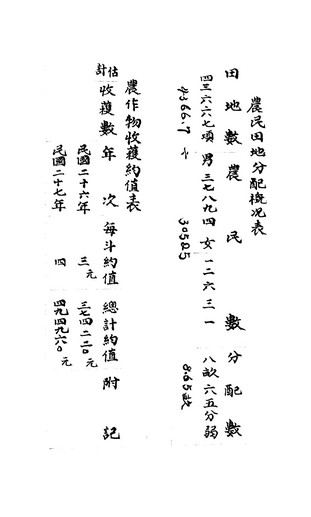 農民田地分配槪況表
田地數 農民數 分配數
四三六六七項 男 三七八九四 女 一二六三一 八畝六五分弱
4366.7 30525 8.65畝
農作物收穫約值表
估計
收穫數 年次 每斗約值 總計約值 附記
民國二十六年 三元 三七四二二〇元
民國二十七年 四 四九四九六〇元